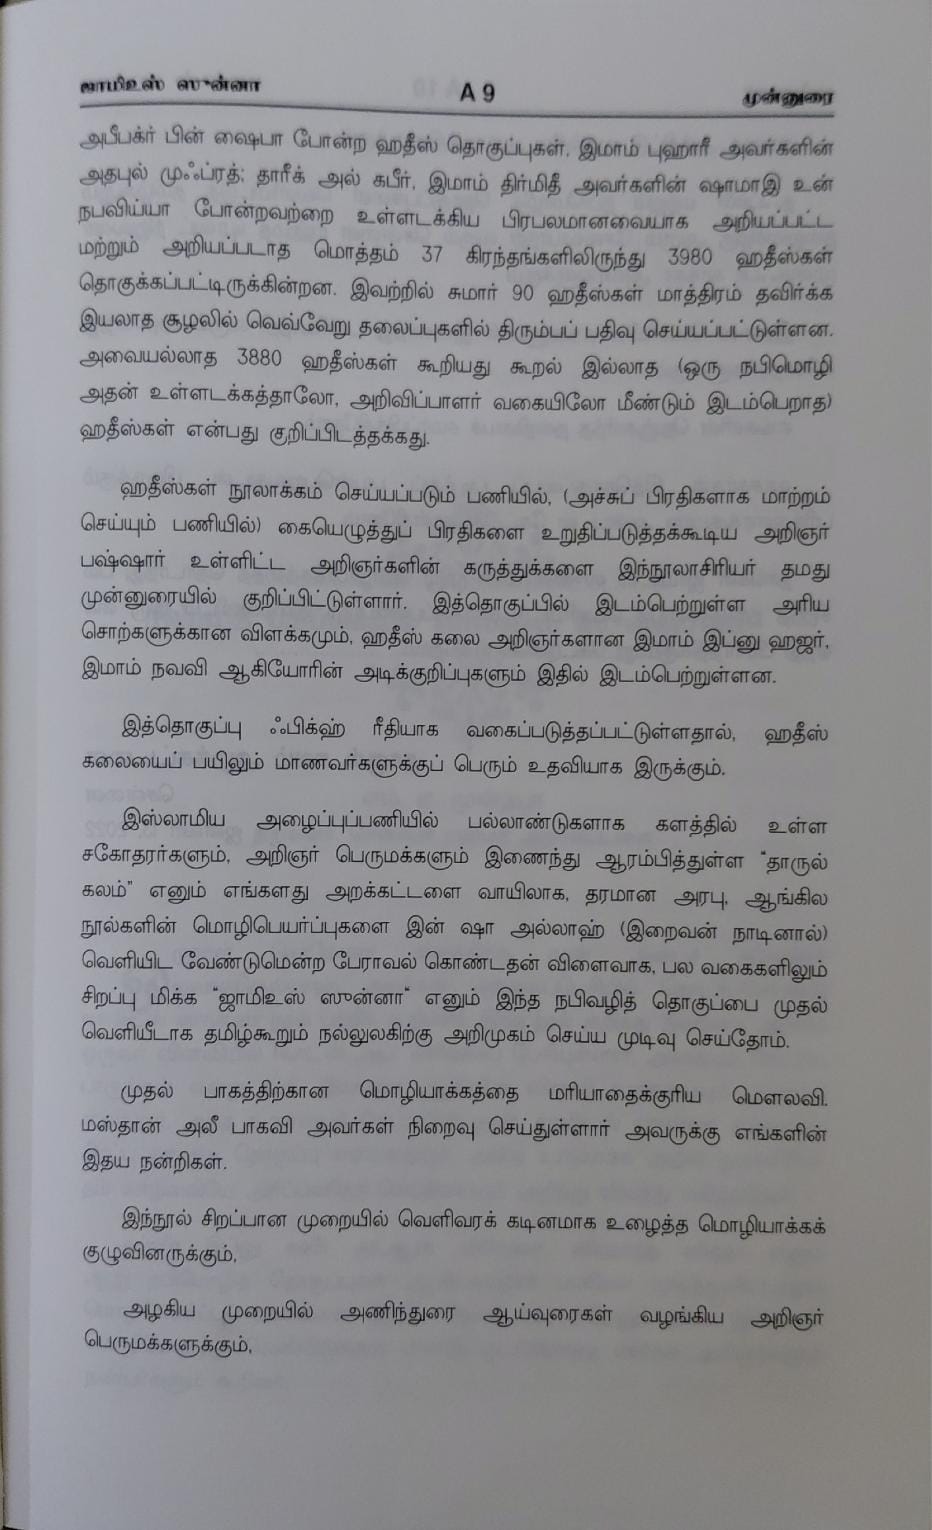 ஜாமிஉஸ் ஸுன்னா
A 9
முன்னுரை
அபீபக்ர் பின் ஷைபா போன்ற ஹதீஸ் தொகுப்புகள், இமாம் புஹாரீ அவர்களின்
அதபுல் முஃப்ரத்; தாரீக் அல் கபீர், இமாம் திர்மிதீ அவர்களின் ஷாமாஇ உன்
நபவிய்யா போன்றவற்றை உள்ளடக்கிய பிரபலமானவையாக அறியப்பட்ட
மற்றும் அறியப்படாத மொத்தம் 37 கிரந்தங்களிலிருந்து 3980 ஹதீஸ்கள்
தொகுக்கப்பட்டிருக்கின்றன. இவற்றில் சுமார் 90 ஹதீஸ்கள் மாத்திரம் தவிர்க்க
இயலாத சூழலில் வெவ்வேறு தலைப்புகளில் திரும்பப் பதிவு செய்யப்பட்டுள்ளன.
அவையல்லாத 3880 ஹதீஸ்கள் கூறியது கூறல் இல்லாத (ஒரு நபிமொழி
அதன் உள்ளடக்கத்தாலோ, அறிவிப்பாளர் வகையிலோ மீண்டும் இடம்பெறாத)
ஹதீஸ்கள் என்பது குறிப்பிடத்தக்கது.
ஹதீஸ்கள் நூலாக்கம் செய்யப்படும் பணியில், (அச்சுப் பிரதிகளாக மாற்றம்
செய்யும் பணியில்) கையெழுத்துப் பிரதிகளை உறுதிப்படுத்தக்கூடிய அறிஞர்
பஷ்ஷார் உள்ளிட்ட அறிஞர்களின் கருத்துக்களை இந்நூலாசிரியர் தமது
முன்னுரையில் குறிப்பிட்டுள்ளார். இத்தொகுப்பில் இடம்பெற்றுள்ள அரிய
சொற்களுக்கான விளக்கமும், ஹதீஸ் கலை அறிஞர்களான இமாம் இப்னு ஹஜர்,
இமாம் நவவி ஆகியோரின் அடிக்குறிப்புகளும் இதில் இடம்பெற்றுள்ளன.
இத்தொகுப்பு ஃபிக்ஹ் ரீதியாக வகைப்படுத்தப்பட்டுள்ளதால், ஹதீஸ்
கலையைப் பயிலும் மாணவர்களுக்குப் பெரும் உதவியாக இருக்கும்.
இஸ்லாமிய அழைப்புப்பணியில் பல்லாண்டுகளாக களத்தில் உள்ள
சகோதரர்களும், அறிஞர் பெருமக்களும் இணைந்து ஆரம்பித்துள்ள “தாருல்
கலம்” எனும் எங்களது அறக்கட்டளை வாயிலாக, தரமான அரபு, ஆங்கில
நூல்களின் மொழிபெயர்ப்புகளை இன் ஷா அல்லாஹ் (இறைவன் நாடினால்)
வெளியிட வேண்டுமென்ற பேராவல் கொண்டதன் விளைவாக, பல வகைகளிலும்
சிறப்பு மிக்க “ஜாமிஉஸ் ஸுன்னா“ எனும் இந்த நபிவழித் தொகுப்பை முதல்
வெளியீடாக தமிழ்கூறும் நல்லுலகிற்கு அறிமுகம் செய்ய முடிவு செய்தோம்.
முதல் பாகத்திற்கான மொழியாக்கத்தை மரியாதைக்குரிய மௌலவி.
மஸ்தான் அலீ பாகவி அவர்கள் நிறைவு செய்துள்ளார் அவருக்கு எங்களின்
இதய நன்றிகள்.
இந்நூல் சிறப்பான முறையில் வெளிவரக் கடினமாக உழைத்த மொழியாக்கக்
குழுவினருக்கும்,
அழகிய முறையில் அணிந்துரை ஆய்வுரைகள் வழங்கிய அறிஞர்
பெருமக்களுக்கும்,